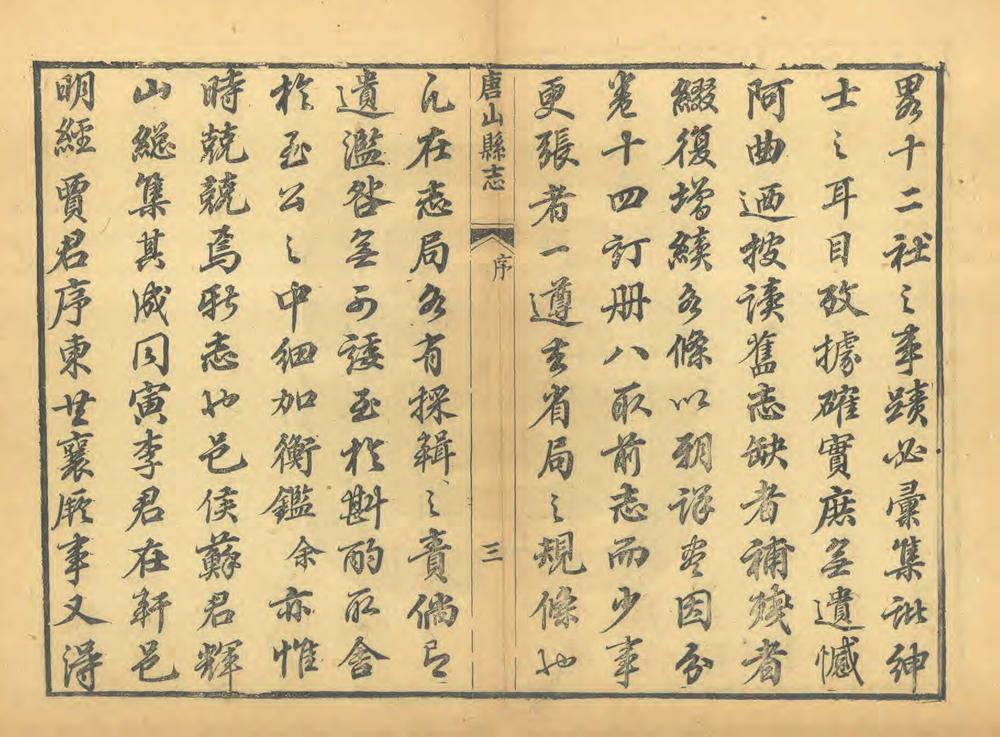 畧十二社之事蹟必彙集紳
士之耳目攷據確實庶無遺憾
阿曲迺披讀舊志缺者補殘者
綴復增續各條以期詳盡因分
卷十四訂册八取前志而少事
更張者一遵省局之規條也
唐山縣志 序 三
凡在志局各有採輯之責倘有
遺濫咎無可諉至於斟酌取舍
於至公之中細加衡鑑余亦惟
時兢兢焉斯志也邑侯蘇君輝
山總集其成同寅李君在軒邑
明經賈君序東共襄厥事又得